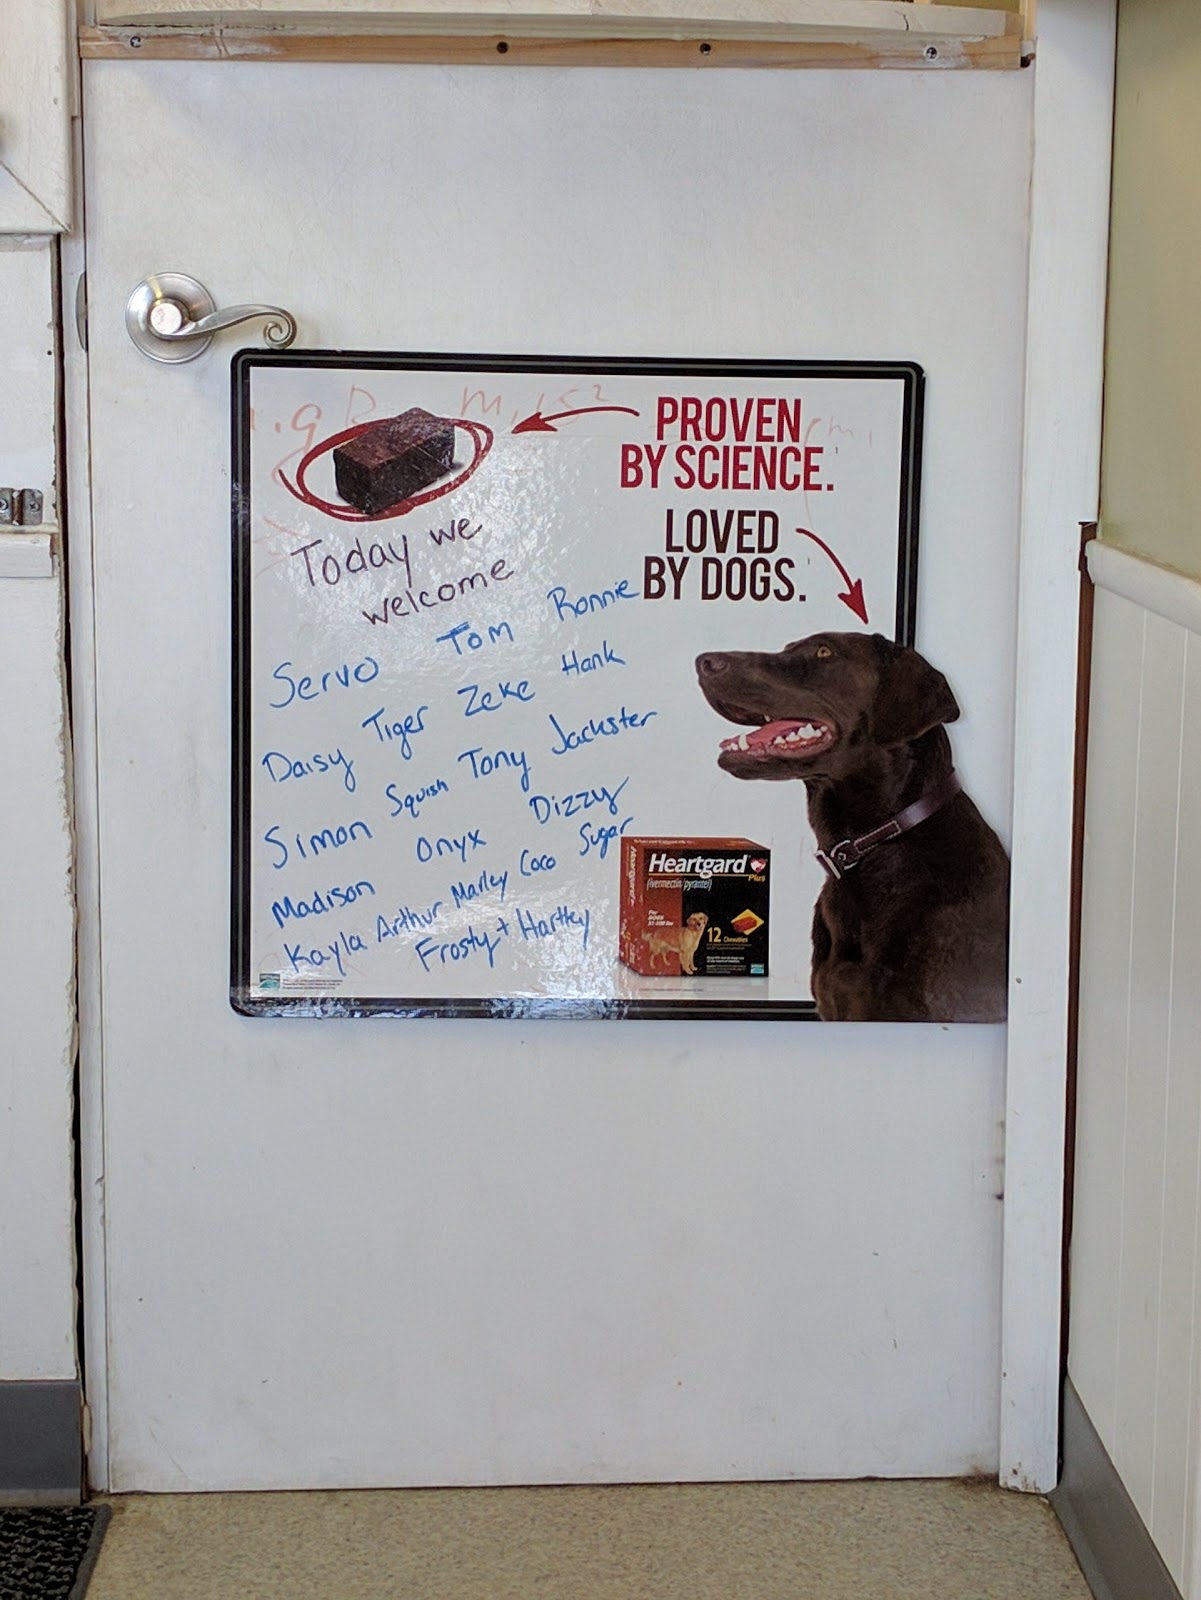 PROVEN
BY SCIENCE.
LOVED
BY DOGS.
Today we
welcome
Servo Tom Ronnie
Daisy Tiger Zeke Hank
Simon Squish Tony Jackster
Madison Onyx Dizzy
Kayla Arthur Marley Coco Sugar
Frosty + Hartley
Heartgard
Plus
(ivermectin/pyrantel)
For
DOGS
12 Chewables